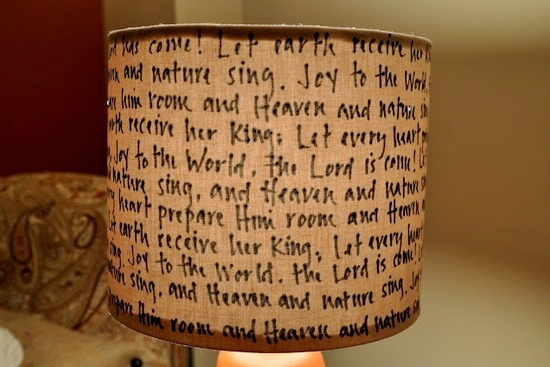 has come! Let earth receive her
and nature sing. Joy to the World,
him room and Heaven and nature
receive her King; Let every heart
Joy to the World, the Lord is come!
nature sing, and Heaven and nature
heart prepare Him room and Heaven
earth receive her King; Let every
Joy to the World, the Lord is come!
sing, and Heaven and nature sing, Joy
Him room and Heaven and nature